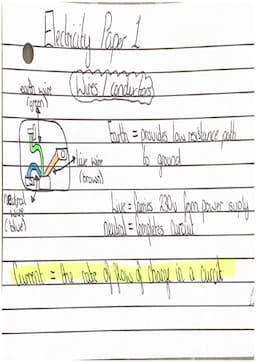 Electricity Paper 1
(Wires / conductors)
earth wire
(green)
live wire
(brown)
neutral
wire
(blue)
Earth = provides low resistance path
to ground
Live = Carries 230v from power supply
neutral = Completes circuit
Current = the rate of flow of charge in a circuit